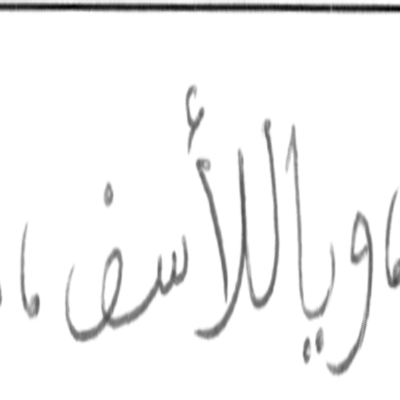 ، ويا للأسف ،